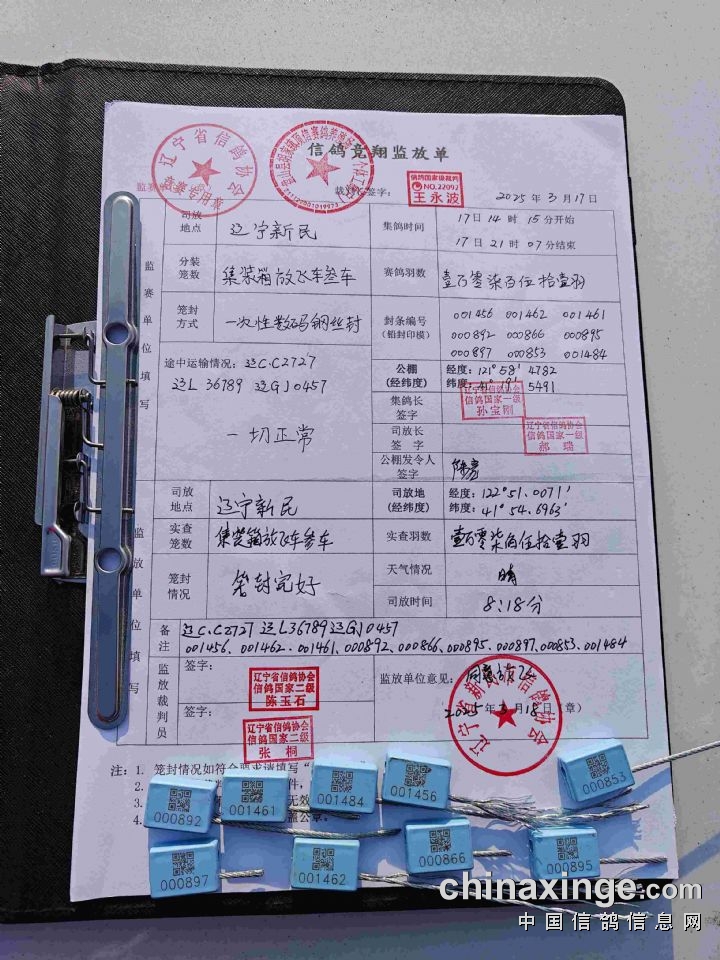 信鸽竞翔监放单
辽宁省信鸽协会
竞赛专用章
信鸽国家级裁判
NO.22092
王永波
签字:
2025年3月17日
司放地点 辽宁新民
集鸽时间 17日14时15分开始
17日21时07分结束
分装笼数 集装箱放飞车叁车
赛鸽羽数 壹万零柒百伍拾壹羽
笼封方式 一次性数码钢丝封
封条编号(铅封印模)
001456 001462 001461
000892 000866 000895
000897 000853 001484
监赛单位填写
途中运输情况: 辽C·C2727
辽L 36789 辽GJ0457
一切正常
公棚(经纬度) 经度: 121°58′4782
纬度: 41°19′5491
集鸽长签字
辽宁省信鸽协会
信鸽国家一级
孙宝刚
司放长签字
辽宁省信鸽协会
信鸽国家一级
郝瑞
公棚发令人签字
监放单位填写
司放地点 辽宁新民
司放地(经纬度) 经度: 122°51.0071′
纬度: 41°54.6963′
实查笼数 集装箱放飞车叁车
实查羽数 壹万零柒百伍拾壹羽
笼封情况 笼封完好
天气情况 晴
司放时间 8:18分
备注 辽C·C2727 辽L36789 辽GJ0457
001456、001462、001461、000892、000866、000895、000897、000853、001484
监放裁判员
签字:
辽宁省信鸽协会
信鸽国家二级
陈玉石
签字:
辽宁省信鸽协会
信鸽国家二级
张桐
监放单位意见: 同意放飞
2025年3月18日(章)
注: 1. 笼封情况如符合要求请填写“
2.
3.
4.
000892
001461
001484
001456
000853
000897
001462
000866
000895
chinaxinge.com
中国信鸽信息网